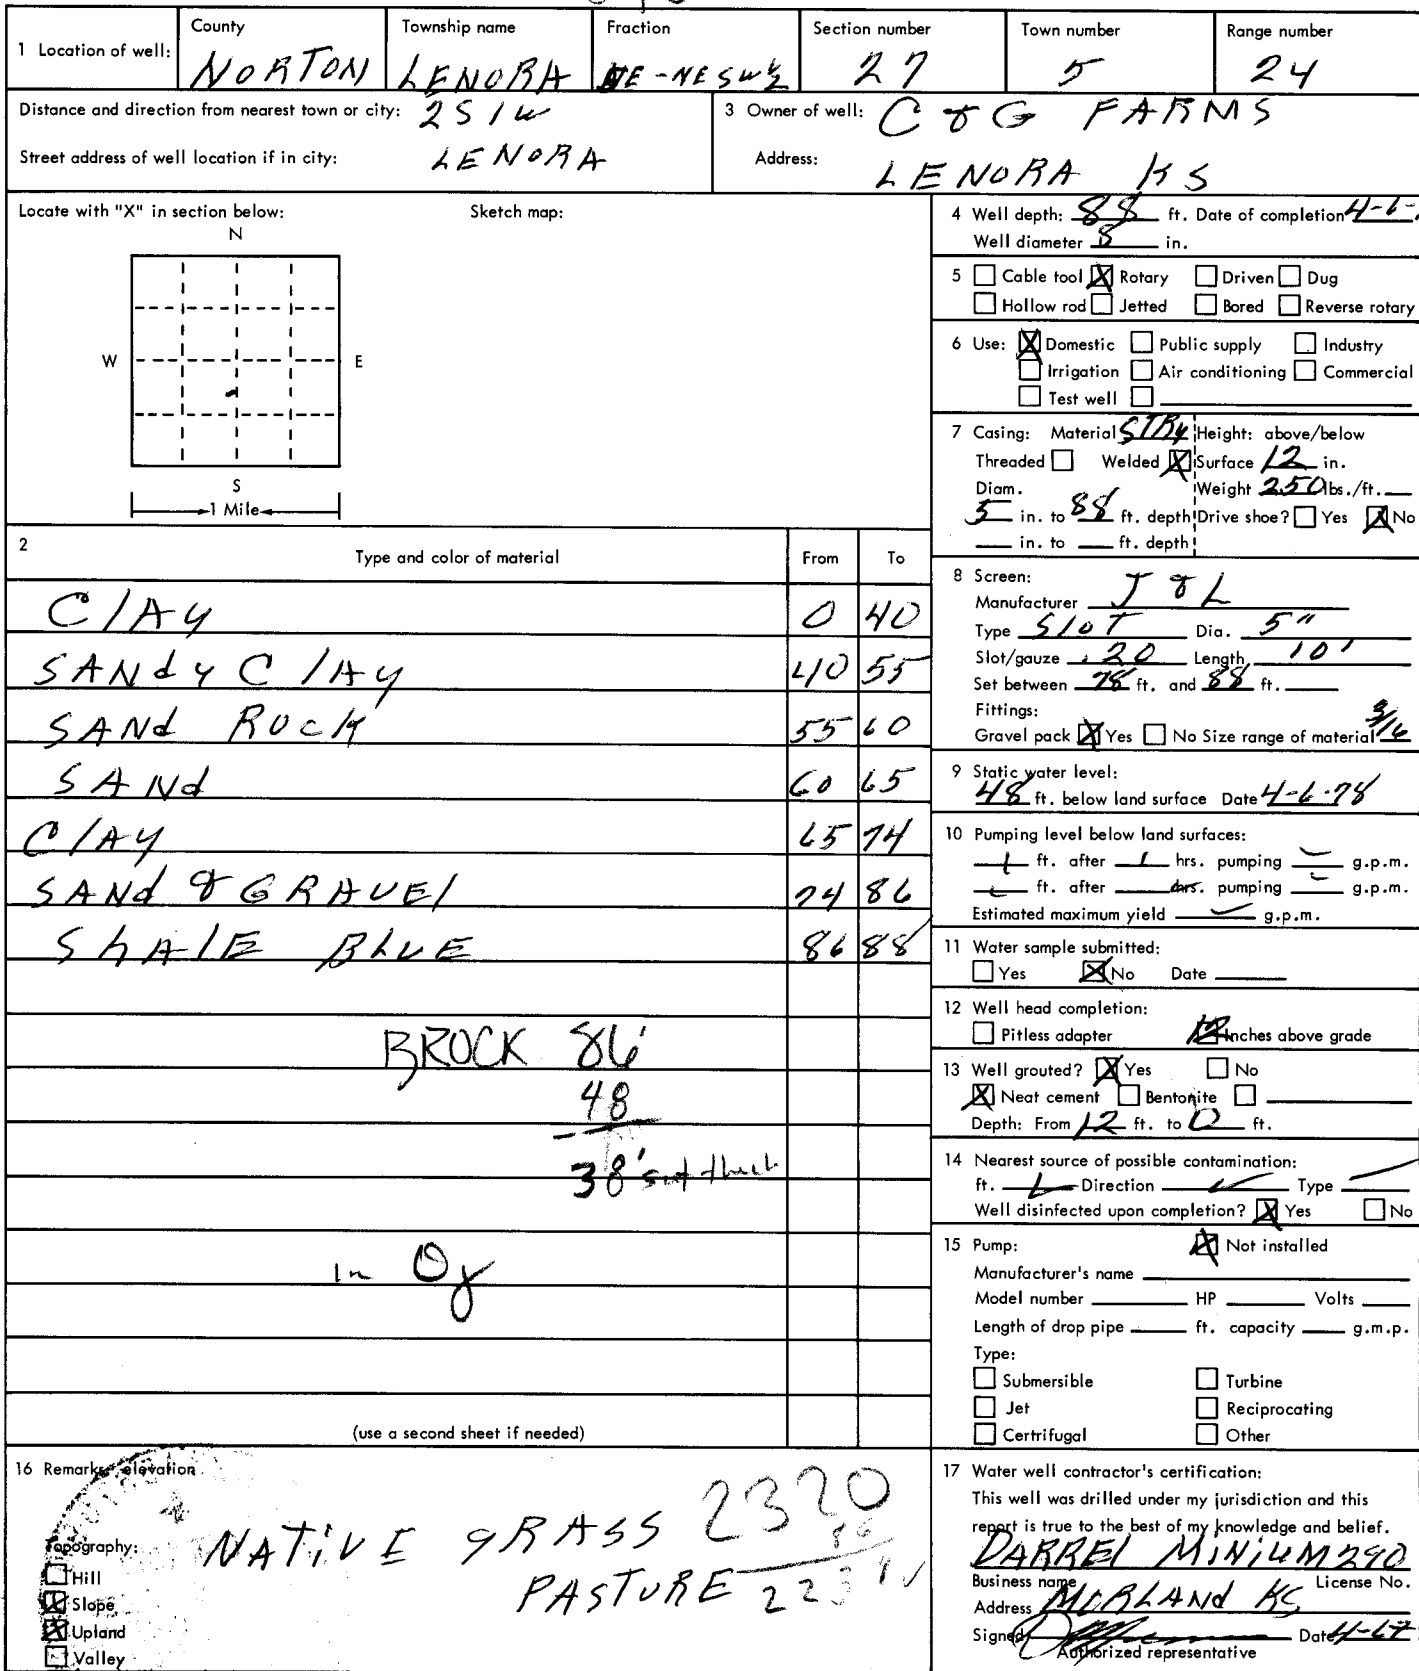 County Township name Fraction Section number Town number Range number
1 Location of well: NORTON LENORA NE-NESW¼ 27 5 24
Distance and direction from nearest town or city: 2S1W
Street address of well location if in city: LENORA
3 Owner of well: C & G FARMS
Address: LENORA KS
Locate with "X" in section below: Sketch map:
N
W E
S
1 Mile
2 Type and color of material From To
ClAy 0 40
SANdy ClAy 40 55
SANd ROCK 55 60
SANd 60 65
ClAy 65 74
SANd & GRAVEl 74 86
ShAlE BLUE 86 88
BROCK 86'
48
38'
in
(use a second sheet if needed)
4 Well depth: 88 ft. Date of completion 4-6-
Well diameter 8 in.
5 Cable tool X Rotary Driven Dug
Hollow rod Jetted Bored Reverse rotary
6 Use: X Domestic Public supply Industry
Irrigation Air conditioning Commercial
Test well
7 Casing: Material Height: above/below
Threaded Welded X Surface 12 in.
Diam. Weight 250 lbs./ft.
5 in. to 88 ft. depth Drive shoe? Yes X No
in. to ft. depth
8 Screen:
Manufacturer J & L
Type SlOT Dia. 5"
Slot/gauze .20 Length 10'
Set between 78 ft. and 88 ft.
Fittings:
Gravel pack X Yes No Size range of material 3/16
9 Static water level:
48 ft. below land surface Date 4-6-78
10 Pumping level below land surfaces:
ft. after hrs. pumping g.p.m.
ft. after hrs. pumping g.p.m.
Estimated maximum yield g.p.m.
11 Water sample submitted:
Yes X No Date
12 Well head completion:
Pitless adapter 12 Inches above grade
13 Well grouted? X Yes No
X Neat cement Bentonite
Depth: From 12 ft. to 0 ft.
14 Nearest source of possible contamination:
ft. Direction Type
Well disinfected upon completion? X Yes No
15 Pump: X Not installed
Manufacturer's name
Model number HP Volts
Length of drop pipe ft. capacity g.m.p.
Type:
Submersible Turbine
Jet Reciprocating
Certrifugal Other
16 Remarks: elevation
Topography:
Hill
X Slope
X Upland
Valley
NATIVE gRASS
PASTURE
2320
86
17 Water well contractor's certification:
This well was drilled under my jurisdiction and this
report is true to the best of my knowledge and belief.
DARREl MINIUM 290
Business name License No.
Address MORLANd KS
Signed Date
Authorized representative